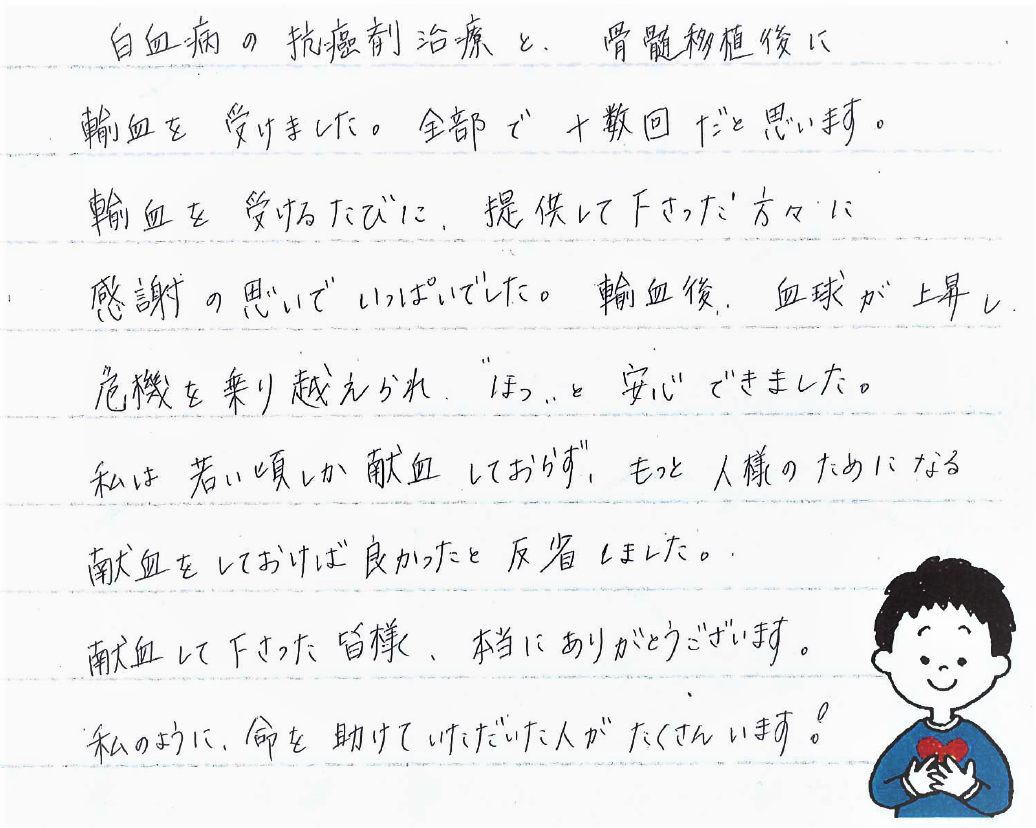 白血病の抗癌剤治療と、骨髄移植後に
輸血を受けました。全部で十数回だと思います。
輸血を受けるたびに、提供して下さった方々に
感謝の思いでいっぱいでした。輸血後、血球が上昇し
危機を乗り越えられ、“ほっ„と安心できました。
私は若い頃しか献血しておらず、もっと人様のためになる
献血をしておけば良かったと反省しました。
献血して下さった皆様、本当にありがとうございます。
私のように、命を助けていただいた人がたくさんいます!